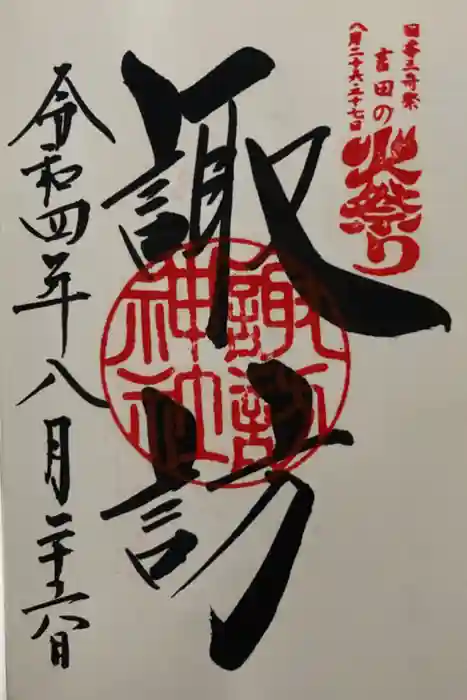 日本三奇祭
吉田の
八月二十六・二十七日
火祭り
諏訪
諏訪
神社
令和四年八月二十六日